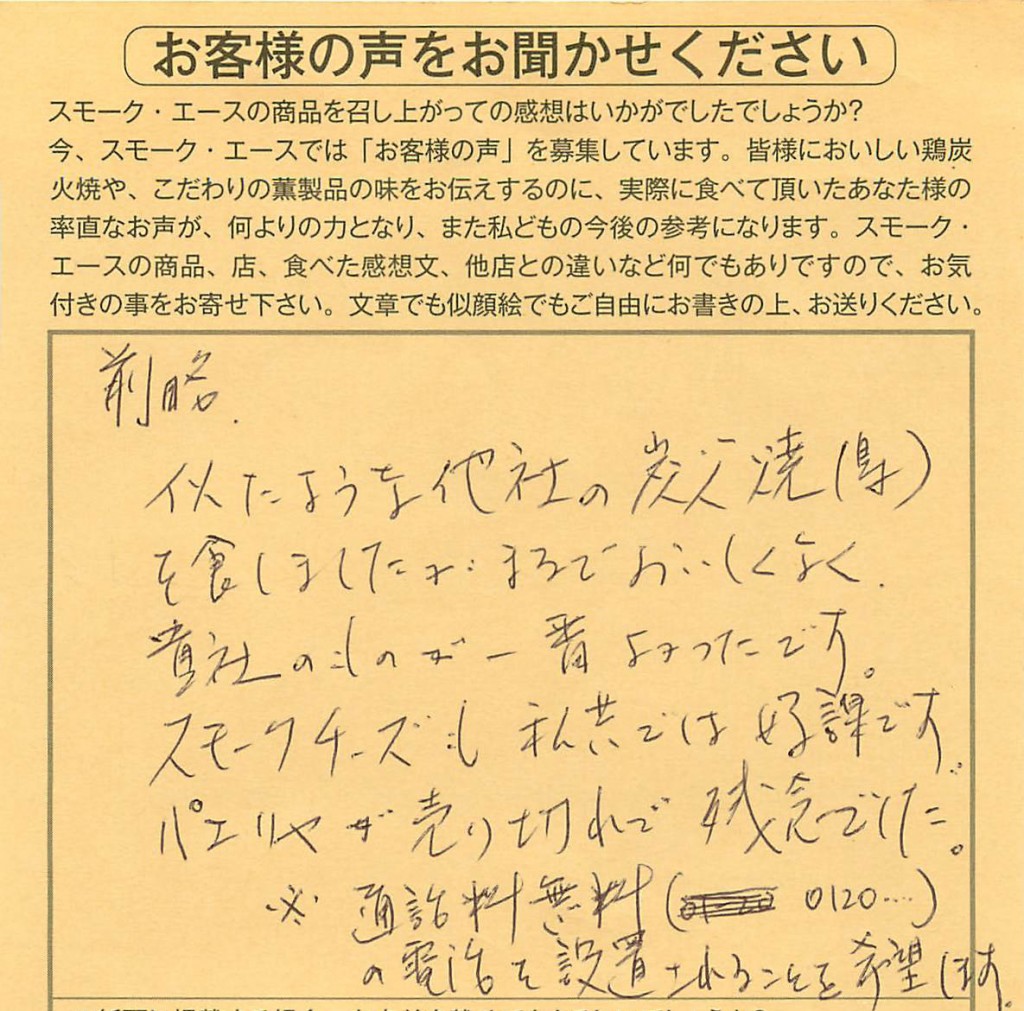 お客様の声をお聞かせください
スモーク・エースの商品を召し上がっての感想はいかがでしたでしょうか?
今、スモーク・エースでは「お客様の声」を募集しています。皆様においしい鶏炭
火焼や、こだわりの薫製品の味をお伝えするのに、実際に食べて頂いたあなた様の
率直なお声が、何よりの力となり、また私どもの今後の参考になります。スモーク・
エースの商品、店、食べた感想文、他店との違いなど何でもありですので、お気
付きの事をお寄せ下さい。文章でも似顔絵でもご自由にお書きの上、お送りください。
前略.
似たような他社の炭火焼(鳥)
を食しましたが、まるでおいしくなく.
貴社のものが一番よかったです。
スモークチーズも私共では好評です。
パエリヤが売り切れで残念でした。
※通話料無料(0120....)
の電話を設置されることを希望します。